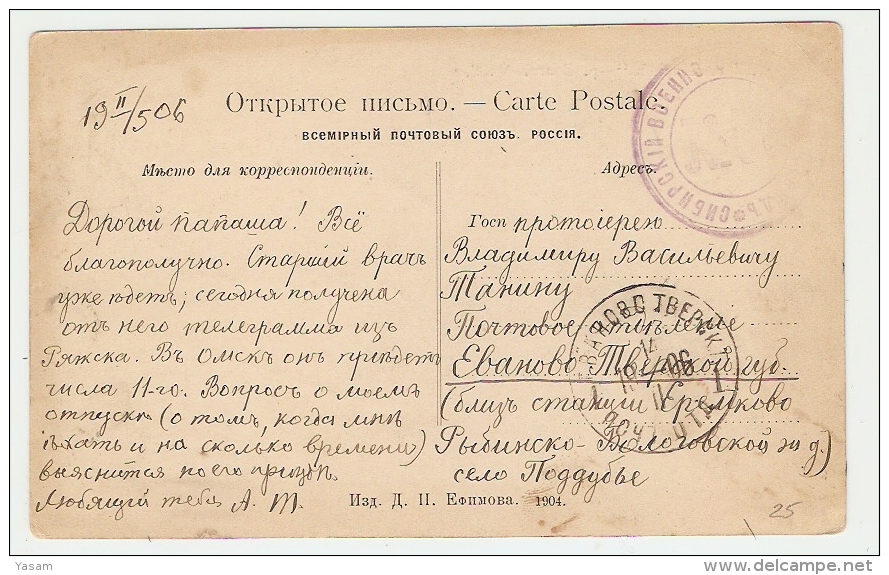 19 II/5 06
Открытое письмо. — Carte Postale.
ВСЕМІРНЫЙ ПОЧТОВЫЙ СОЮЗЪ. РОССІЯ.
СИБИРСКІЙ ВОЕННО
Мѣсто для корреспонденціи.
Адресъ.
Дорогой папаша! Всё
благополучно. Старшій врачъ
уже ѣдетъ; сегодня получена
отъ него телеграмма изъ
Ряжска. Въ Омскъ онъ пріѣдетъ
числа 11-го. Вопросъ о моемъ
отпускѣ (о томъ, когда мнѣ
ѣхать и на сколько времени)
выяснится по его пріѣздѣ.
Любящій тебя А. Т.
Госп протоіерею
Владиміру Васильевичу
Танину
Почтовое отдѣленіе
Еваново Тверской губ.
(близъ станціи Еремково
Рыбинско-Бологовской ж д.)
село Поддубье
ИВАНОВО ТВЕРСК. Г.
06
Изд. Д. П. Ефимова. 1904.
25
Yasam
delcampe.net